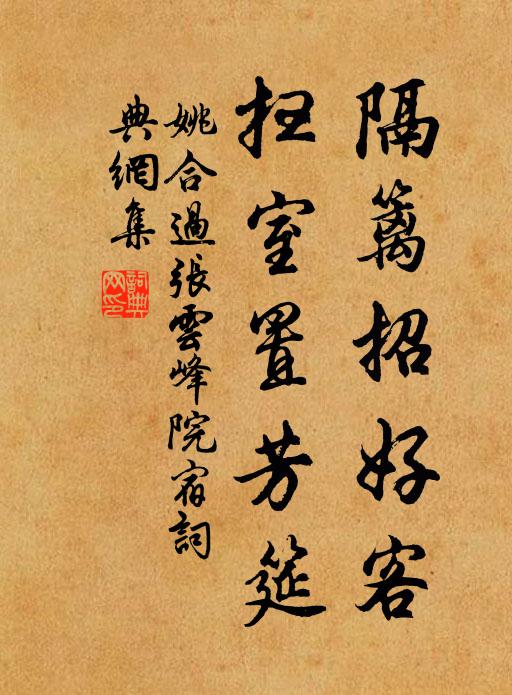 隔籬招好客
扫室置芳筵
姚合過張雲峰院宿詞
典網集
詞典网印